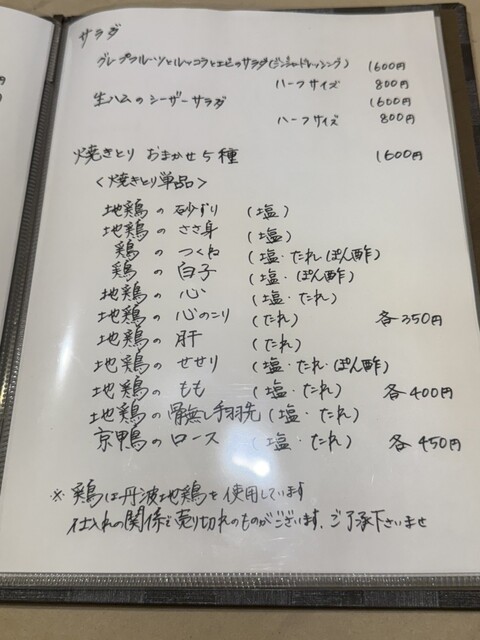 サラダ
グレープフルーツとルッコラとエビのサラダ(ジンジャードレッシング) 1600円
ハーフサイズ 800円
生ハムのシーザーサラダ 1600円
ハーフサイズ 800円
焼きとり おまかせ5種 1600円
<焼きとり単品>
地鶏の砂ずり (塩)
地鶏のささ身 (塩)
鶏のつくね (塩・たれ・ぽん酢)
鶏の白子 (塩・ぽん酢)
地鶏の心 (塩・たれ)
地鶏の心のこり (たれ) 各350円
地鶏の肝 (たれ)
地鶏のせせり (塩・たれ・ぽん酢)
地鶏のもも (塩・たれ) 各400円
地鶏の骨無し手羽先 (塩・たれ)
京鴨のロース (塩・たれ) 各450円
※鶏は丹波地鶏を使用しています
仕入れの関係で売り切れのものがございます、ご了承下さいませ